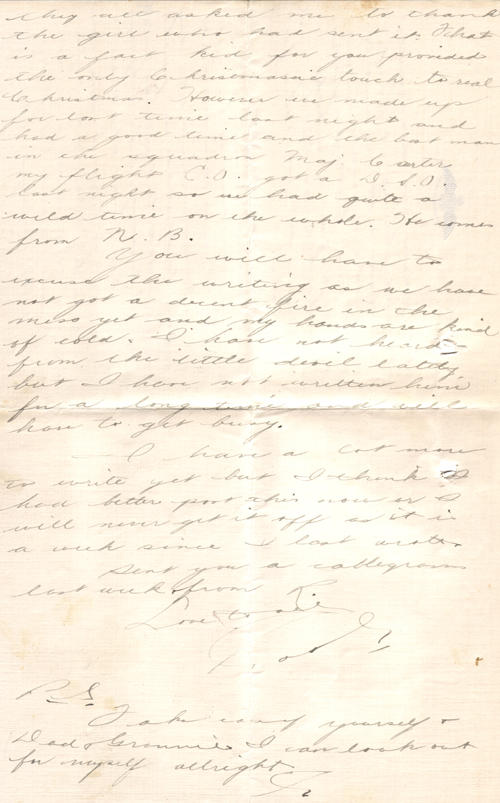 they all asked me to thank
the girl who had sent it. That
is a fact kid for you provided
the only Chrismassie touch to real
Christmas. However we made up
for lost time last night and
had a good time and the best man
in the squadron Maj. Carter
my flight C.O. got a D.S.O.
last night so we had quite a
wild time on the whole. He comes
from N. B.
You will have to
excuse the writing as we have
not got a decent fire in the
mess yet and my hands are kind
of cold. I have not heard
from the little devil lately
but I have not written him
for a long time and will
have to get busy.
I have a lot more
to write yet but I think I
had better post this now or I
will never get it off as it is
a week since I last wrote.
Sent you a cablegram
last week from
Love to all
P.S.
Take care of yourself &
Dad & Grannie. I can look out
for myself allright